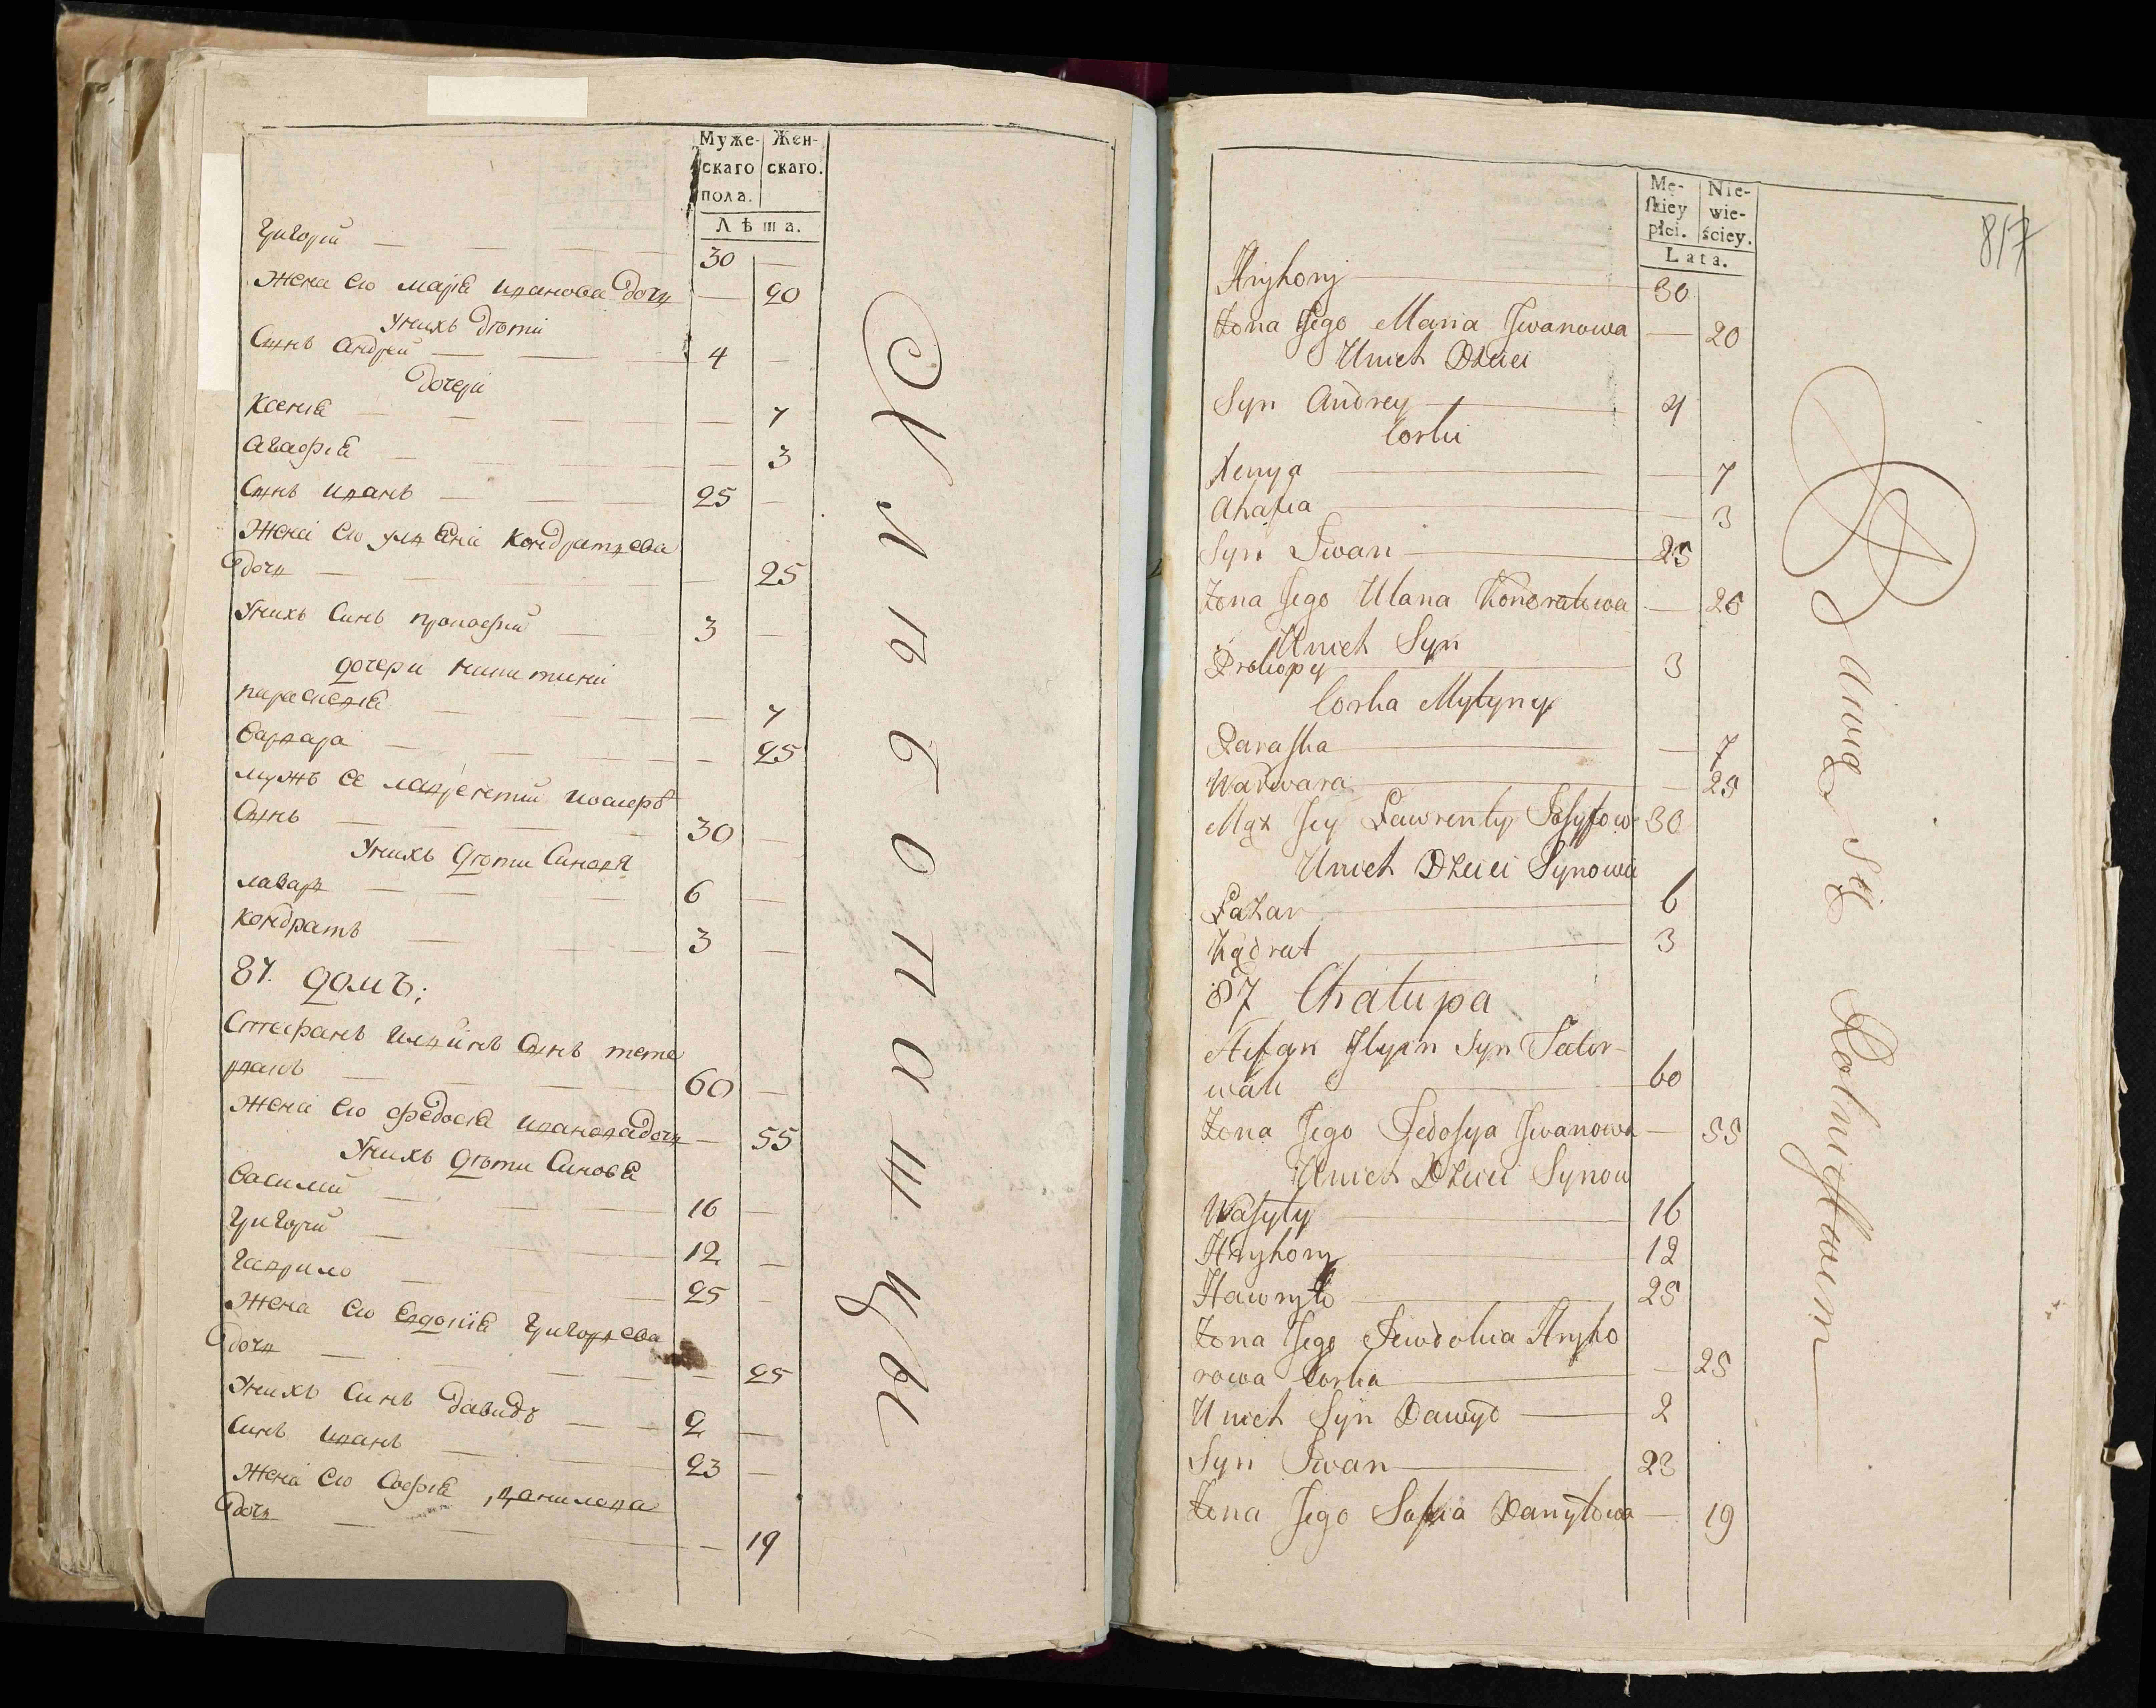 Муже- Жен-
скаго скаго.
пола.
Лѣта.
Григорій — 30 —
Жена Его Марія Иванова дочь — 20
Унихъ дѣти
Синъ Андрей — 4 —
дочери
Ксенія — 7
Агафія — 3
Синъ Иванъ — 25 —
Жена Его Уліана Кондратьева
дочь — 25
Унихъ Синъ прокофій — 3 —
дочери
параскевія — 7
Варвара — 25
мужъ Ее лаврентій Иосифовъ
Синъ — 30 —
Унихъ дѣти Синовя
лазарь — 6 —
Кондратъ — 3 —
87. домъ;
Стефанъ Ильинъ Синъ тете
рвакъ — 60 —
Жена Его федосія Иванова дочь — 55
Унихъ дѣти Синовя
Василий — 16 —
Григорій — 12 —
Гаврило — 25 —
Жена Его Евдокія Григорьева
дочь — 25
Унихъ Синъ Давидъ — 2 —
Синъ Иванъ — 23 —
Жена Его Софія Данилова
дочь — 19
Хлѣбопашцы
Mę- Nie-
ſkiey wie-
płci. ściey.
Lata.
817
Hryhory — 30
Żona Jego Maria Jwanowa — 20
Unich Dzieci
Syn Andrey — 4
Corki
Xenya — 7
Ahafia — 3
Syn Jwan — 25
Żona Jego Ulana Kondratowa — 25
Unich Syn
Prokopy — 3
Corka Mytyny
Paraſka — 7
Warwara — 25
Mąż Jey Lawrenty Josyfow 30
Unich Dzieci Synowie
Łazar — 6
Kądrat — 3
87 Chałupa
Stefan Jlyin Syn Teter-
wak — 60
Żona Jego Fedosya Jwanowa — 55
Unich Dzieci Synow
Wasyly — 16
Hryhory — 12
Hawryło — 25
Żona Jego Jewdokia Hryho
rowa Corka — 25
Unich Syn Dawyd — 2
Syn Jwan — 23
Żona Jego Sofia Danyłowa — 19
Bawią się Rolnictwem